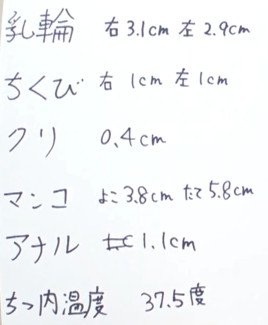 乳輪 右3.1cm 左2.9cm
ちくび 右 1cm 左1cm
クリ 0.4cm
マンコ よこ3.8cm たて5.8cm
アナル 1.1cm
ちつ内温度 37.5度